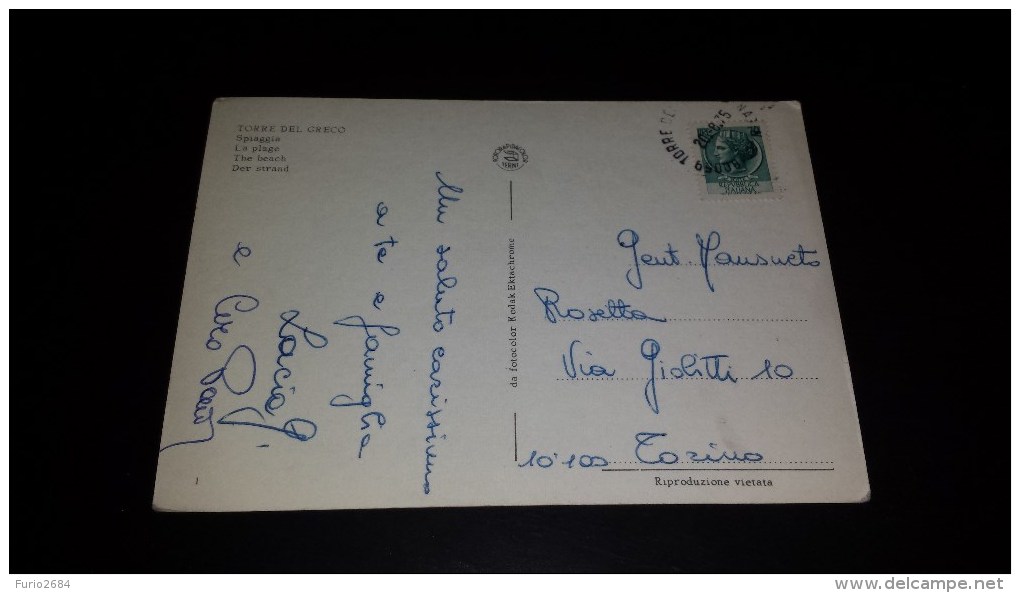 TORRE DEL GRECO
Spiaggia
La plage
The beach
Der strand
Un saluto carissimo
a te e famiglia
Lucia
e
Ciro
da fotocolor Kodak Ektachrome
TORRE DE
26.8.75
REPUBBLICA
ITALIANA
Gent. Mansueto
Rosetta
Via Giolitti 10
10100 Torino
Riproduzione vietata
1
Furio2684
delcampe.net